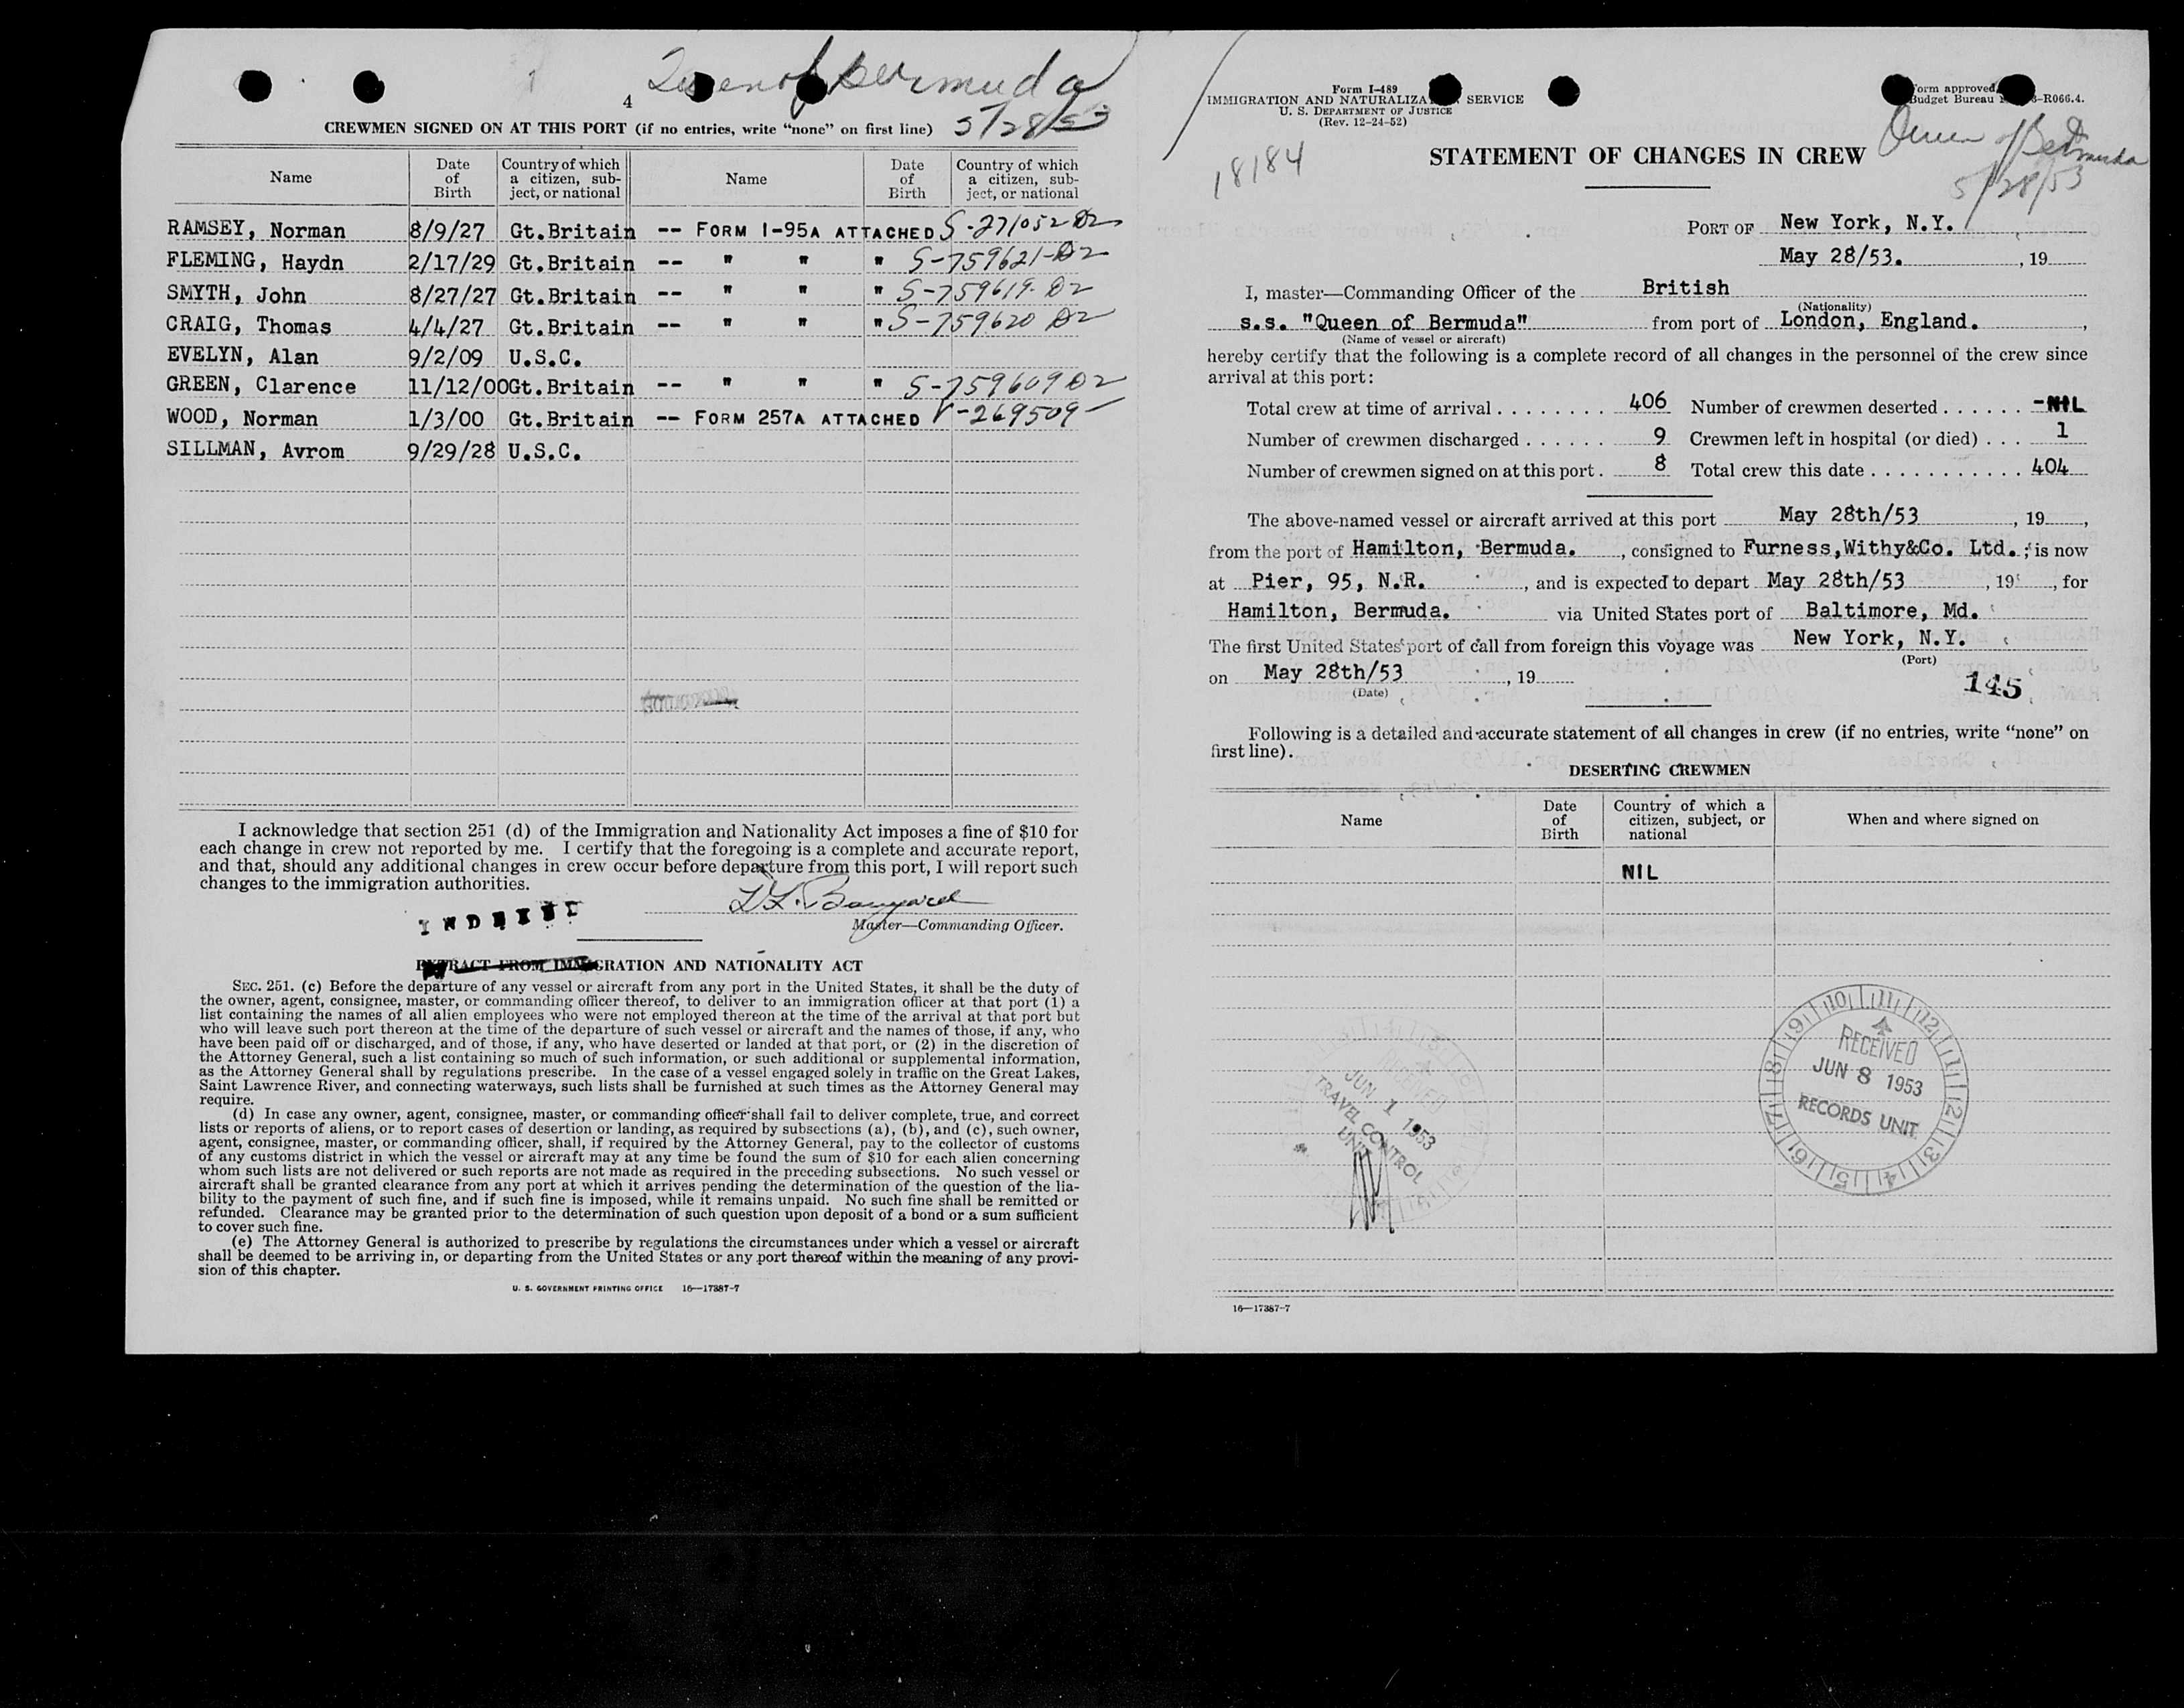 4
Queen of Bermuda
CREWMEN SIGNED ON AT THIS PORT (if no entries, write “none” on first line) 5/28/53
Name Date of Birth Country of which a citizen, subject, or national Name Date of Birth Country of which a citizen, subject, or national
RAMSEY, Norman 8/9/27 Gt.Britain -- FORM I-95A ATTACHED S-271052 D2
FLEMING, Haydn 2/17/29 Gt.Britain -- " " " S-759621-D2
SMYTH, John 8/27/27 Gt.Britain -- " " " S-759619-D2
CRAIG, Thomas 4/4/27 Gt.Britain -- " " " S-759620 D2
EVELYN, Alan 9/2/09 U.S.C.
GREEN, Clarence 11/12/00Gt.Britain -- " " " S-759609 D2
WOOD, Norman 1/3/00 Gt.Britain -- FORM 257A ATTACHED V-269509-
SILLMAN, Avrom 9/29/28 U.S.C.
I acknowledge that section 251 (d) of the Immigration and Nationality Act imposes a fine of $10 for
each change in crew not reported by me. I certify that the foregoing is a complete and accurate report,
and that, should any additional changes in crew occur before departure from this port, I will report such
changes to the immigration authorities.
Master—Commanding Officer.
EXTRACT FROM IMMIGRATION AND NATIONALITY ACT
SEC. 251. (c) Before the departure of any vessel or aircraft from any port in the United States, it shall be the duty of
the owner, agent, consignee, master, or commanding officer thereof, to deliver to an immigration officer at that port (1) a
list containing the names of all alien employees who were not employed thereon at the time of the arrival at that port but
who will leave such port thereon at the time of the departure of such vessel or aircraft and the names of those, if any, who
have been paid off or discharged, and of those, if any, who have deserted or landed at that port, or (2) in the discretion of
the Attorney General, such a list containing so much of such information, or such additional or supplemental information,
as the Attorney General shall by regulations prescribe. In the case of a vessel engaged solely in traffic on the Great Lakes,
Saint Lawrence River, and connecting waterways, such lists shall be furnished at such times as the Attorney General may
require.
(d) In case any owner, agent, consignee, master, or commanding officer shall fail to deliver complete, true, and correct
lists or reports of aliens, or to report cases of desertion or landing, as required by subsections (a), (b), and (c), such owner,
agent, consignee, master, or commanding officer, shall, if required by the Attorney General, pay to the collector of customs
of any customs district in which the vessel or aircraft may at any time be found the sum of $10 for each alien concerning
whom such lists are not delivered or such reports are not made as required in the preceding subsections. No such vessel or
aircraft shall be granted clearance from any port at which it arrives pending the determination of the question of the lia-
bility to the payment of such fine, and if such fine is imposed, while it remains unpaid. No such fine shall be remitted or
refunded. Clearance may be granted prior to the determination of such question upon deposit of a bond or a sum sufficient
to cover such fine.
(e) The Attorney General is authorized to prescribe by regulations the circumstances under which a vessel or aircraft
shall be deemed to be arriving in, or departing from the United States or any port thereof within the meaning of any provi-
sion of this chapter.
U. S. GOVERNMENT PRINTING OFFICE 16—17387-7
Form I-489
IMMIGRATION AND NATURALIZA SERVICE
U. S. DEPARTMENT OF JUSTICE
(Rev. 12-24-52)
Form approved
Budget Bureau -R066.4.
18184
STATEMENT OF CHANGES IN CREW
Queen of Bermuda
5/28/53
PORT OF New York, N.Y.
May 28/53. , 19
I, master—Commanding Officer of the British
(Nationality)
s.s. "Queen of Bermuda" from port of London, England. ,
(Name of vessel or aircraft)
hereby certify that the following is a complete record of all changes in the personnel of the crew since
arrival at this port:
Total crew at time of arrival . . . . . . . . 406 Number of crewmen deserted . . . . . . -NIL
Number of crewmen discharged . . . . . . 9 Crewmen left in hospital (or died) . . . 1
Number of crewmen signed on at this port . 8 Total crew this date . . . . . . . . . . . . 404
The above-named vessel or aircraft arrived at this port May 28th/53 , 19 ,
from the port of Hamilton, Bermuda. , consigned to Furness,Withy&Co. Ltd. ; is now
at Pier, 95, N.R. , and is expected to depart May 28th/53 , 19 , for
Hamilton, Bermuda. via United States port of Baltimore, Md.
The first United States port of call from foreign this voyage was New York, N.Y.
(Port)
on May 28th/53 , 19
(Date)
145
Following is a detailed and accurate statement of all changes in crew (if no entries, write “none” on
first line).
DESERTING CREWMEN
Name Date of Birth Country of which a citizen, subject, or national When and where signed on
NIL
RECEIVED
JUN 1 1953
TRAVEL CONTROL
UNIT
RECEIVED
JUN 8 1953
RECORDS UNIT
16—17387-7